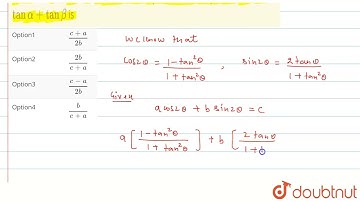 tan α + tan β is
Option1 c + a / 2b
Option2 2b / c + a
Option3 c − a / 2b
Option4 b / c + a
we know that
cos2θ = 1 − tan²θ / 1 + tan²θ , sin2θ = 2 tanθ / 1 + tan²θ
Given
a cos2θ + b sin2θ = c
a [ 1 − tan²θ / 1 + tan²θ ] + b [ 2 tanθ / 1 + t
doubtnut